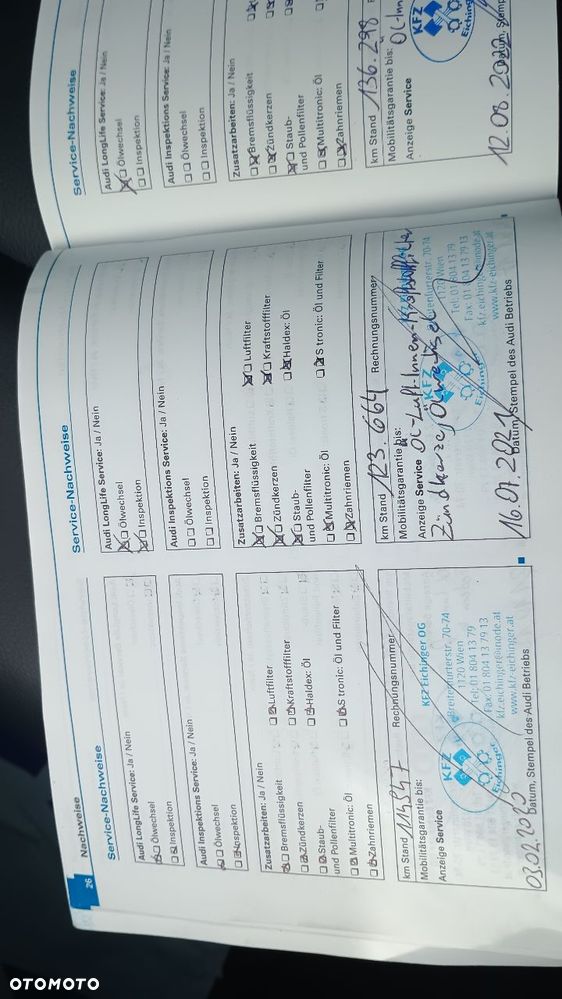 26
Nachweise
Service-Nachweise
Audi LongLife Service: Ja / Nein
Ölwechsel
Inspektion
Audi Inspektions Service: Ja / Nein
Ölwechsel
Inspektion
Zusatzarbeiten: Ja / Nein
Bremsflüssigkeit
Luftfilter
Zündkerzen
Kraftstofffilter
Staub-
und Pollenfilter
Haldex: Öl
Multitronic: Öl
S tronic: Öl und Filter
Zahnriemen
km Stand
Rechnungsnummer
Mobilitätsgarantie bis:
Anzeige Service
KFZ Eichinger OG
Breitenfurterstr. 70-74
1120 Wien
Tel: 01 804 13 79
Fax: 01 804 13 79 13
kfz.eichinger@inode.at
www.kfz-eichinger.at
KFZ
Eichinger
03.02.
Datum, Stempel des Audi Betriebs
Service-Nachweise
Audi LongLife Service: Ja / Nein
Ölwechsel
Inspektion
Audi Inspektions Service: Ja / Nein
Ölwechsel
Inspektion
Zusatzarbeiten: Ja / Nein
Bremsflüssigkeit
Luftfilter
Zündkerzen
Kraftstofffilter
Staub-
und Pollenfilter
Haldex: Öl
Multitronic: Öl
S tronic: Öl und Filter
Zahnriemen
km Stand 123.664
Rechnungsnummer
Mobilitätsgarantie bis:
Anzeige Service Öl-Luft-Innen-Kraftstofffilter
Zündkerze, Ölwechsel
KFZ
Eichinger
1120 Wien
Tel: 01 804 13 79
Fax: 01 804 13 79 13
kfz.eichinger@inode.at
www.kfz-eichinger.at
16.07.2021
Datum, Stempel des Audi Betriebs
Service-Nachweise
Audi LongLife Service: Ja / Nein
Ölwechsel
Inspektion
Audi Inspektions Service: Ja / Nein
Ölwechsel
Inspektion
Zusatzarbeiten: Ja / Nein
Bremsflüssigkeit
Zündkerzen
Staub-
und Pollenfilter
Multitronic: Öl
Zahnriemen
km Stand 136.298
Mobilitätsgarantie bis:
Anzeige Service
KFZ
12.08.2022
OTOMOTO